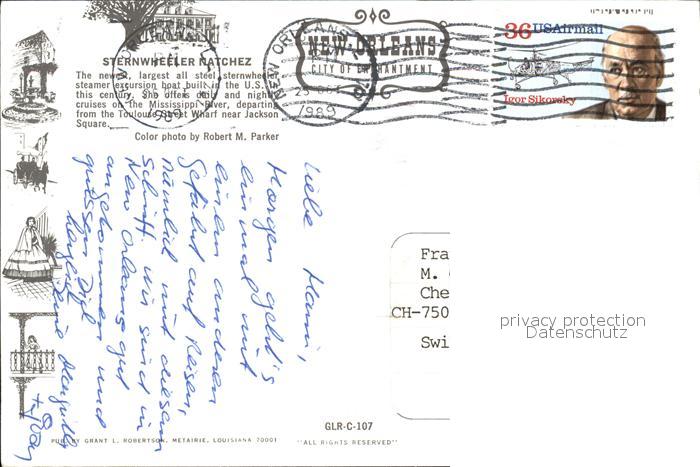 STERNWHEELER NATCHEZ
The newest, largest all steel sternwheeler
steamer excursion boat built in the U.S. in
this century. She offers daily and nightly
cruises on the Mississippi River, departing
from the Toulouse Street Wharf near Jackson
Square.
Color photo by Robert M. Parker
NEW ORLEANS
1989
NEW ORLEANS
CITY OF ENCHANTMENT
36 USAirmail
Igor Sikorsky
Liebe Hanni,
Morgen geht's
einmal mit
einem anderen
Gefährt auf Reisen,
nämlich mit diesem
Schiff. Wir sind in
New Orleans gut
angekommen und
grüssen Dich
herzlich
Deine
+
Fra
M.
Che
CH-750
Swi
privacy protection
Datenschutz
GLR-C-107
PUB. BY GRANT L. ROBERTSON, METAIRIE, LOUISIANA 70001
"ALL RIGHTS RESERVED"